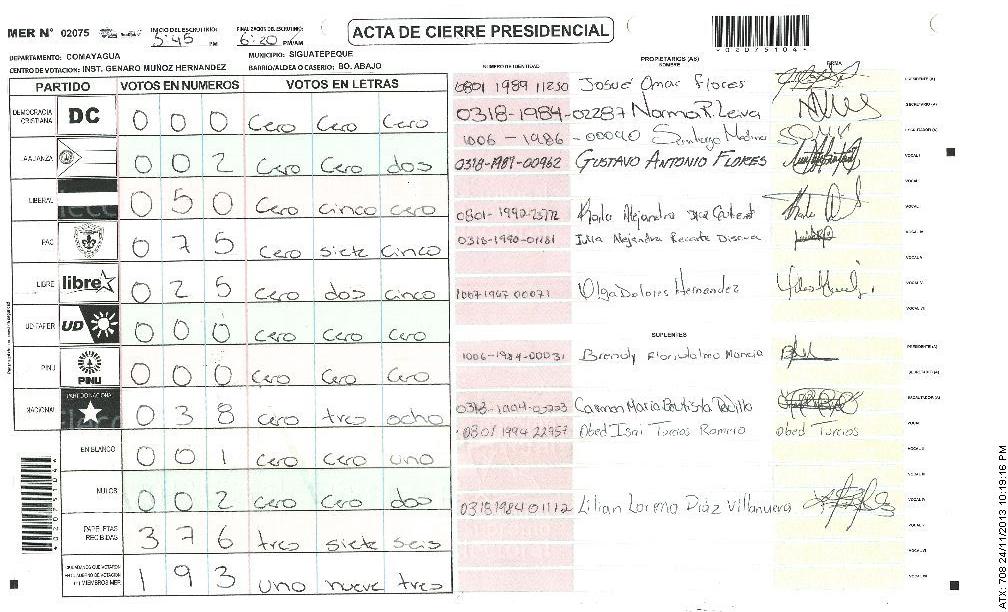 MER N° 02075
INICIO DEL ESCRUTINIO: 5:45 PM
FINALIZACION DEL ESCRUTINIO: 6:20 PM/AM
ACTA DE CIERRE PRESIDENCIAL
DEPARTAMENTO: COMAYAGUA
MUNICIPIO: SIGUATEPEQUE
CENTRO DE VOTACION: INST. GENARO MUÑOZ HERNANDEZ
BARRIO/ALDEA O CASERIO: BO. ABAJO
PARTIDO VOTOS EN NUMEROS VOTOS EN LETRAS
DEMOCRACIA CRISTIANA DC 0 0 0 Cero Cero Cero
ALIANZA 0 0 2 Cero Cero dos
LIBERAL 0 5 0 Cero cinco cero
PAC 0 7 5 Cero siete cinco
LIBRE libre 0 2 5 Cero dos cinco
UD FAPER UD 0 0 0 Cero Cero Cero
PINU PINU 0 0 0 Cero Cero Cero
NACIONAL PARTIDO NACIONAL 0 3 8 Cero tres ocho
EN BLANCO 0 0 1 Cero Cero uno
NULOS 0 0 2 Cero Cero dos
PAPELETAS RECIBIDAS 3 7 6 tres siete seis
CIUDADANOS QUE VOTARON EN CUADERNO DE VOTACION (+) MIEMBROS MER 1 9 3 uno nueve tres
NUMERO DE IDENTIDAD PROPIETARIOS (AS) NOMBRE FIRMA
0801 1989 11250 Josué Omar Flores PRESIDENTE (A)
0318-1984-02287 Norma R. Leiva SECRETARIO (A)
1006 - 1986 - 00090 Santiago Medina ESCRUTADOR (A)
0318-1981-00962 GUSTAVO ANTONIO FLORES VOCAL I
0801-1992- Karla Alejandra
0318-1990-01181 Alejandra
10071967 00071 Olga Dolores Hernandez
SUPLENTES
1006-1984-00031 PRESIDENTE (A)
SECRETARIO (A)
Carmen Maria Bautista Padilla ESCRUTADOR (A)
0801 1994 22957 Obed Isai Turcios Romero Obed Turcios
0318 1984 01112 Lilian Lorena Díaz Villanueva
020751044
ATX: 708 24/11/2013 10:19:16 PM